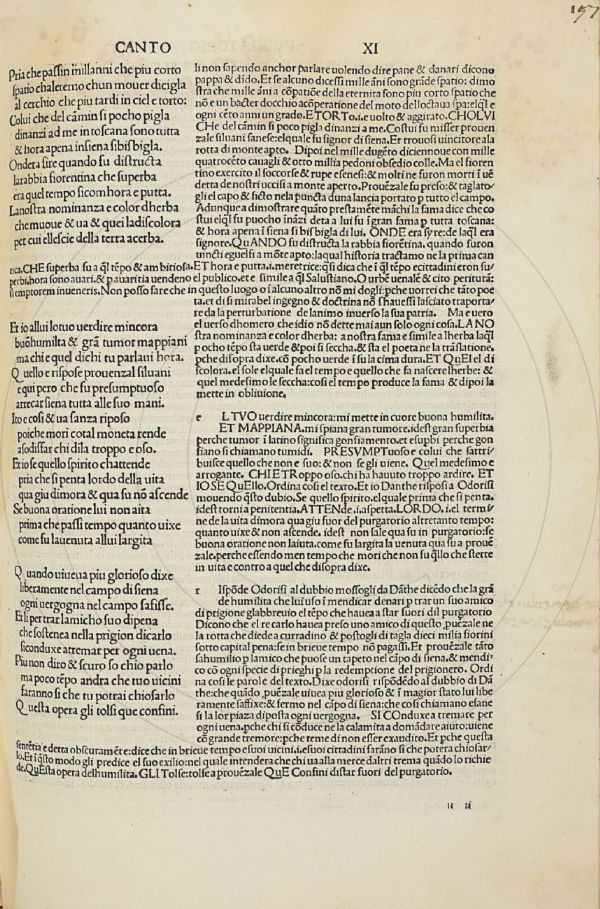 197
CANTO XI
Pria che passin mill anni che piu corto
spatio chal eterno chun mouer di cigla
al cerchio che piu tardi in ciel e torto:
Colui che del cámin si poco pigla
dinanzi ad me in toscana sono tutta
& hora apena in siena sibisbigla.
Ondera sire quando fu distructa
la rabbia fiorentina che superba
era quel tempo sicom hora e putta.
La nostra nominanza e color dherba
che muoue & ua & quei la discolora
per cui ellescie della terra acerba.
li non sapendo anchor parlare uolendo dire pane & danari dicono
pappa & dido. Et se alcuno dicessi mille ãni sono grãde spatio: dimo
stra che mille ãni a cõpatiõe della eternita sono piu corto spatio che
nõ e un bacter docchio acõperatione del moto delloctaua spa: elql e
ogni cẽto anni un grado. ETORTO.i.e uolto & aggirato. CHOLVI
CHe del cãmin si poco pigla dinanzi a me. Costui fu misser prouen
zale siluani sanese: elquale fu signor di siena. Et trouosi uincitore ala
rotta di monte apto. Dipoi nel mille dugẽto diciennoue con mille
quatrocẽto cauagli & otto millia pedoni obsedio colle. Ma el fioren
tino exercito il soccorse & rupe e senesi: & molti ne furon morti ĩ uẽ
detta de nostri uccisi a monte aperto. Prouẽzale fu preso: & taglato
gli el capo & ficto nela pũcta duna lancia portato p tutto el campo.
Adunque a dimostrare quãto prestamẽte mãchi la fama dice che co
stui elql fu puocho inãzi deta a lui fu ĩ gran fama p tutta toscana:
& hora apena ĩ siena si bisbigla di lui. ONDE era syre: de laql era
signore. QuANDO fu distructa la rabbia fiorẽtina. quando furon
uincti e guelfi a mõte apto: laqual historia tractamo ne la prima can
tica. CHE superba fu a ql tẽpo & ambitiosa. ET hora e putta.i.meretrice: qsi dica che ĩ ql tẽpo e cittadini eron su/
perbi. hora sono auari. & p auaritia uendeno el publico. et e simile a ql Salustiano. O urbẽ uenalẽ & cito perituta:
si emptorem inueneris. Non posso fare che in questo luogo o ĩ alcuno altro nõ mi dogli: pche uorrei che tãto poe
ta. et di si mirabel ingegno & doctrina nõ shauessi lasciato traporta/
re da la perturbatione de lanimo inuerso la sua patria. Ma e uero
el uerso dhomero che idio nõ dette mai aun solo ogni cosa. LA NO
stra nominanza e color dherba: a nostra fama e simile a lherba laql
p ocho tẽpo sta uerde & poi si seccha. & sta el poeta ne la trãslatione.
pche disopra dixe. cõ pocho uerde ĩ su la cima dura. ET QuEI el di
scolora. el sole el quale fa el tempo e quello che fa nascere lherbe: &
quel medesimo le seccha: cosi el tempo produce la fama & dipoi la
mette in obliuione.
Et io allui lo tuo uer dire mincora
buõ humilta & grã tumor mappiani
ma chi e quel di chi tu parlaui hora.
Quello e rispose prouenzal siluani
e qui pero che fu presumptuoso
arrecar siena tutta alle suo mani.
Ito e cosi & ua sanza riposo
poi che mori cotal moneta rende
a sodisfar chi di la troppo e oso.
Et io se quello spirito chattende
pria che si penta lordo della uita
qua giu dimora & qua su nõ ascende
Se buona oratione lui non aita
prima che passi tempo quanto uixe
come fu la uenuta allui largita
e L TVO uer dire mincora: mi mette in cuore buona humilita.
ET MAPPIANA. mi spiana gran tumore. idest gran superbia
perche tumor ĩ latino significa gonfiamento. et e supbi perche gon
fiano si chiamano tumidi. PRESVMPTuoso e colui che sattri/
buisce quello che non e suo: & non se gli uiene. Quel medesimo e
arrogante. CHI E TRoppo oso. chi ha hauuto troppo ardire. ET
IO SE QuELlo. Ordina cosi el texto. Et io Dãthe risposi a Odorisi
mouendo qsto dubio. Se quello spirito. elquale prima che si penta.
idest torni a penitentia. ATTENde.i.aspetta. LORDO.i.el termi/
ne de la uita dimora qua giu fuor del purgatorio altretanto tempo:
quanto uixe & non ascende. idest non sale qua su in purgatorio: se
buona oratione non laiuta. come fu largita la uenuta qua su a prouẽ
zale. perche essendo men tempo che mori che non fu qllo che stette
in uita e contro a quel che disopra dixe.
Quando uiueua piu glorioso dixe
liberamente nel campo di siena
ogni uergogna nel campo safisse.
Et li per trar lamicho suo di pena
che sostenea nella prigion di carlo
si conduxe a tremar per ogni uena.
Piu non diro & scuro so chio parlo
ma poco tẽpo andra che tuoi uicini
faranno si che tu potrai chiosarlo
Questa opera gli tolsi que confini.
r Ispõde Odorisi al dubbio mossogli da Dãthe dicẽdo che la grã
de humilita che lui uso ĩ mendicar denari p trar un suo amico
di prigione glabbreuio el tẽpo che hauea a star fuori dil purgatorio
Dicono che el re carlo hauea preso uno amico di questo puẽzale ne
la rotta che diede a curradino & postogli di tagla dieci milia fiorini
sotto capital pena: se in brieue tempo nõ pagassi. Et prouẽzale tãto
sahumilio p lamico che puose un tapeto nel cãpo di siena: & mendi/
co cõ ogni specie di prieghi p la redemptione del prigionero. Ordi
na cosi le parole del texto. Dixe odorisi rispõdẽdo al dubbio di Dã
the: che quãdo puẽzale uiuea piu glorioso & ĩ magior stato lui libe
ramente saffixe: & fermo nel cãpo di siena: che cosi chiamano e sane
si la lor piaza diposta ogni uergogna. SI COnduxe a tremare per
ogni uena. pche chi si cõduce ne la calamita a domãdare aiuto: uiene
cõ grande tremore: pche teme di non esser exaudito. Et pche questa
sentẽtia e detta obscuramẽte: dice che in brieue tẽpo e suoi uicini.i.e suoi cittadini farãno si che potera chiosar/
lo. Et ĩ qsto modo gli predice el suo exilio: nel quale intendera che chi ua alla merce daltri trema quãdo lo richie
de. QuEsta opera del humilita. GLI Tolse: tolse a prouẽzale QuE Confini di star fuori del purgatorio.